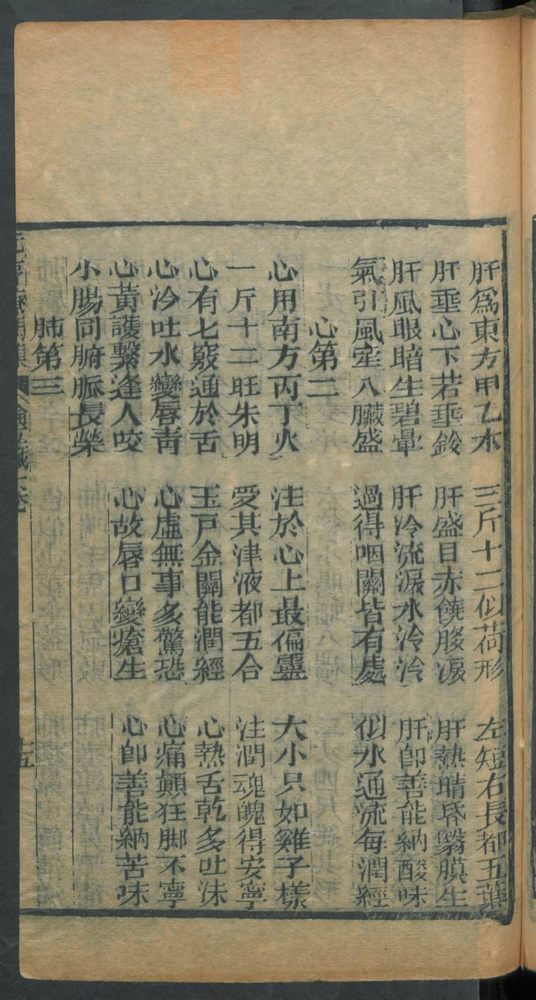 肝爲東方甲乙木 三斤十二似荷形 左短右長都五葉
肝垂心下若垂鈴 肝盛目赤饒䏶淚 肝熱睛昏翳膜生
肝風眼暗生碧暈 肝冷流淚水泠泠 肝卽善能納酸味
氣引風牽八臟盛 過得咽關皆有處 似水通流每潤經
心第二
心用南方丙丁火 注於心上最偏靈 大小只如雞子樣
一斤十二旺朱明 愛其津液都五合 注潤魂魄得安寧
心有七竅通於舌 玉戸金關能潤經 心熱舌乾多吐沫
心冷吐水變唇青 心虛無事多驚恐 心痛顛狂脚不寧
心黃護繫逢人咬 心故唇口變瘡生 心卽善能納苦味
小腸同腑脈長榮
肺第三
元亨療馬集 卷 十五